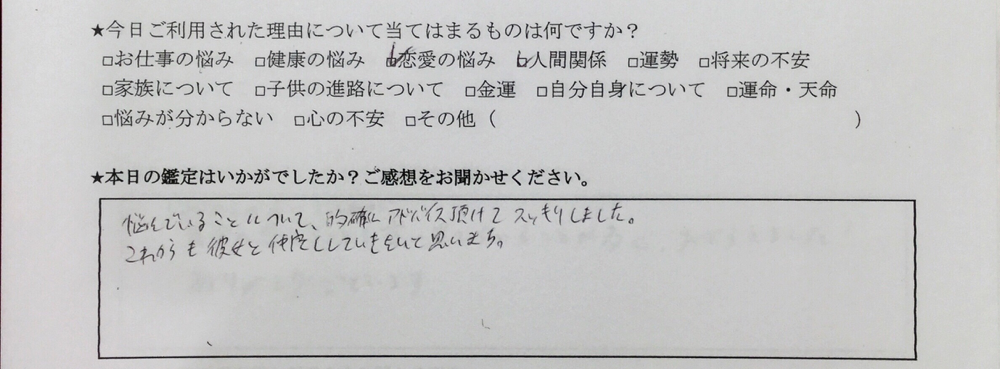 ★今日ご利用された理由について当てはまるものは何ですか？
□お仕事の悩み □健康の悩み □恋愛の悩み □人間関係 □運勢 □将来の不安
□家族について □子供の進路について □金運 □自分自身について □運命・天命
□悩みが分からない □心の不安 □その他（ ）
★本日の鑑定はいかがでしたか？ご感想をお聞かせください。
悩んでいることについて、的確にアドバイス頂けてスッキリしました。
これからも彼女と仲良くしていきたいと思います。